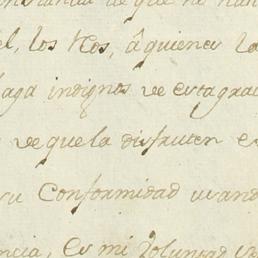 de que se han
el, los Reos, â quienes la
haga indignos de esta gracia
de que la disfruten e
su Conformidad usand
ncia, Es mi Voluntad